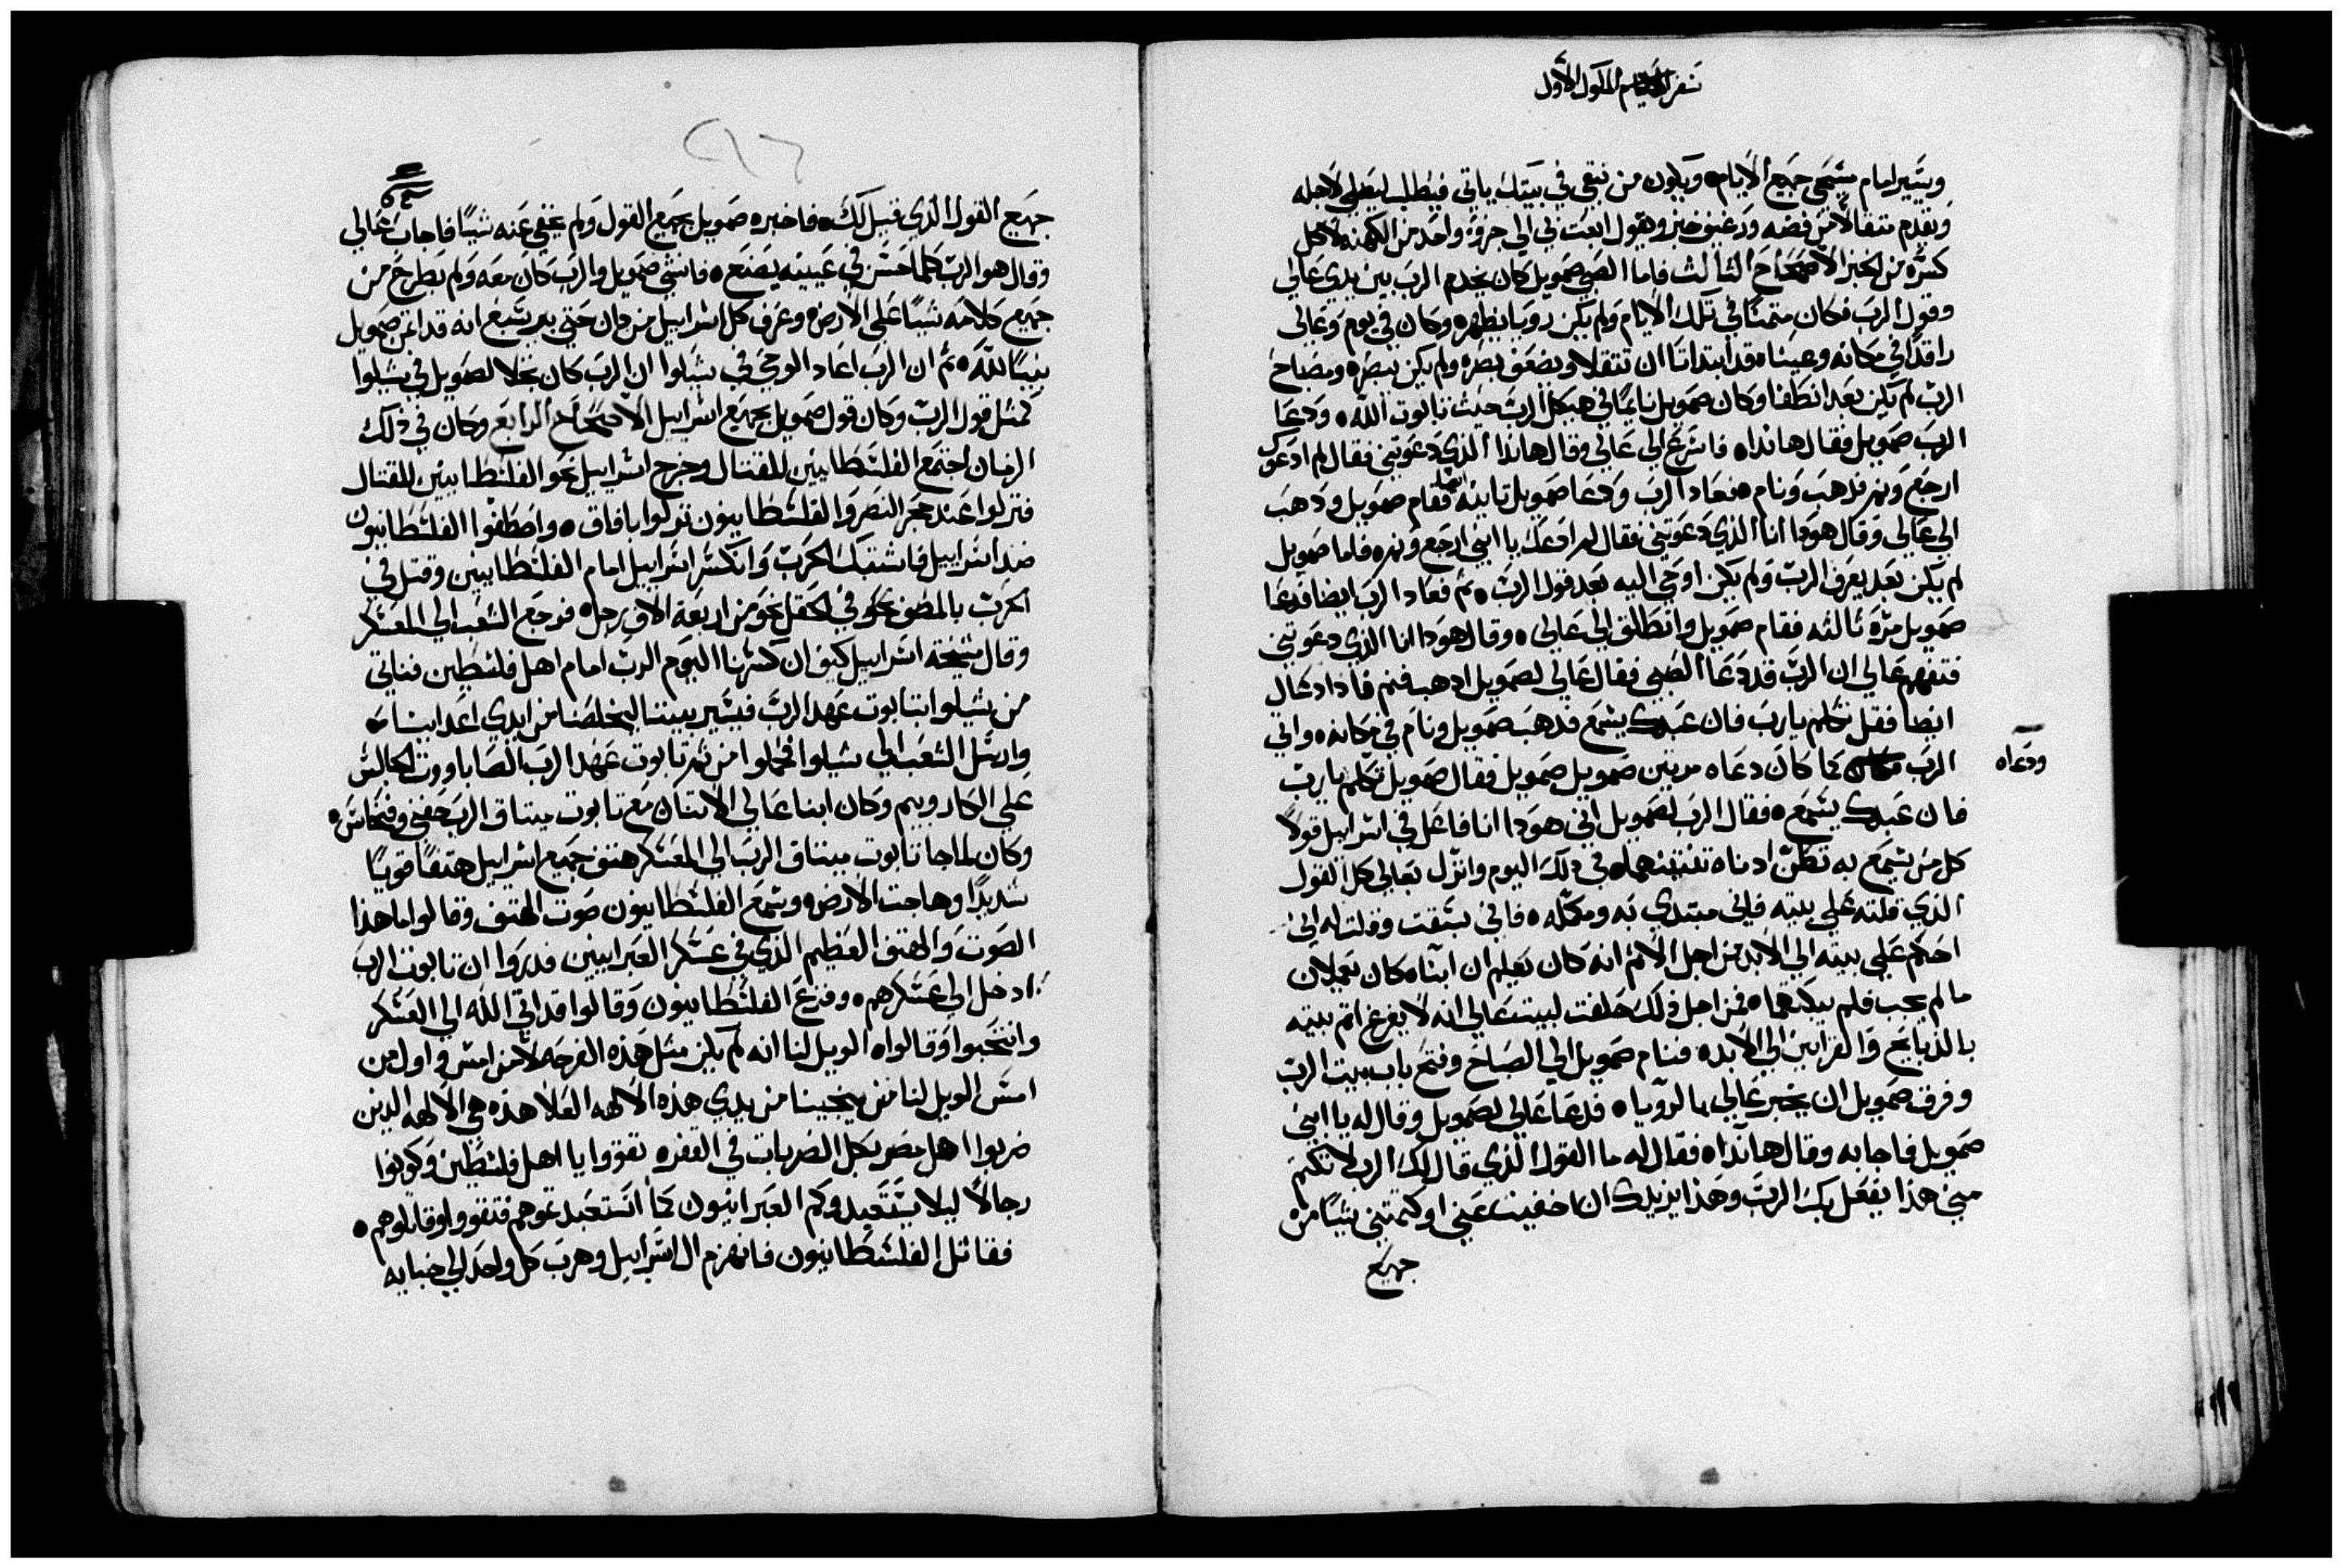 سفر الملوك الأول
ويسير امام مسيحي جميع الأيام ويكون من تبقى في بيتك ياتي فيطلب ليصلي لاجله
وتقدم متقالا من فضه ورغيف خبز ويقول ابعث بي الي جزؤ واحد من الكهنه لاكل
كسره من الخبز الأصحاح الثالث فاما الصبي صمويل كان يخدم الرب بين يدي عالي
وقول الرب فكان متمنا في تلك الايام ولم يكن رويا بظهره وكان في يوم وعالي
راقدا في مكانه وعيناه قد ابتداتا ان تتقلا وضعف بصره ولم يكن يبصره ومصباح
الرب لم يكن بعد انطفا وكان صمويل نايما في هيكل الرب حيث تابوت الله ودعا
الرب صمويل فقال هانذا فاسرع الي عالي وقال هانذا الذي دعوتني فقال لم ادعوك
ارجع ونم فدهب ونام فعاد الرب ودعا صمويل تانيه ايضا فقام صمويل ودهب
الي عالي وقال هودا انا الذي دعوتني فقال لم ادعك يا ابني ارجع ونم فاما صمويل
لم يكن بعد يعرف الرب ولم يكن اوحي اليه بعد قول الرب ثم فعاد الرب ايضا فدعا
صمويل مرة ثالثه فقام صمويل وانطلق الي عالي وقال هودا انا الذي دعوتني
فتفهم عالي ان الرب قد دعا الصبي فقال عالي لصمويل ادهب فنم فادا دعاك
ايضا فقل تكلم يارب فان عبدك يسمع فدهب صمويل ونام في مكانه واتي
ودعاه
الرب كما كان دعاه مرتين صمويل صمويل فقال صمويل تكلم يارب
فان عبدك يسمع فقال الرب لصمويل اني هودا انا فاعل في اسراييل قولا
كل من يسمع به تطن ادناه تنتيهما في دلك اليوم وانزل بعالي كل القول
الذي قلته علي بيته فاني مبتدي به ومكمله فاني سبقت وقلت له اني
احكم علي بيته الي الابد من اجل الاثم انه كان يعلم ان ابناه كان يعملان
ما لم يجب فلم يبكتهما فمن اجل ذلك حلفت لبيت عالي انه لا يفرغ اثم بيته
بالذبايح والقرابين الي الابد فنام صمويل الي الصباح وفتح باب بيت الرب
وفرق صمويل ان يخبر عالي بالرويا فدعا عالي لصمويل وقال له يا ابني
صمويل فاجابه وقال هانذا فقال له ما القول الذي قال لك الرب لا تكتم
مني هذا يفعل بك الرب وهذا يزيدك ان اخفيت عني او كتمتني شيا من
جميع
٩٦
جميع القول الذي قيل لك فاخبره صمويل بجميع القول ولم يخفي عنه شيا فاجاب عالي
وقال هو الرب كلما حسن في عينيه يصنع فانشي صمويل والرب كان معه ولم يطرح من
جميع كلامه شيا علي الارض وعرف كل اسراييل من دان حتي بير سبع انه قد اتمن صمويل
نبيا لله ثم ان الرب اعاد الوحي في شيلوا ان الرب كان تجلا لصمويل في شيلوا
كمثل قول الرب وكان قول صمويل بجميع اسراييل الأصحاح الرابع وكان في ذلك
الزمان اجتمع الفلسطانيين للقتال وخرج اسراييل نحو الفلسطانيين للقتال
فنزلوا عند حجر النصر والفلسطانيون نزلوا بافاق واصطفوا الفلسطانيون
ضد اسراييل فاشتبك الحرب وانكسر اسراييل امام الفلسطانيين وقتل في
الحرب بالمصف نحو وفي الحقل نحو من اربعة الاف رجل فرجع الشعب الي المعسكر
وقال مشيخة اسراييل كيف ان كسرنا اليوم الرب امام اهل فلسطين فناتي
من شيلوا بتابوت عهد الرب فيسير بيننا ليخلصنا من ايدي اعداينا
وارسل الشعب الي شيلوا فحملوا من ثم تابوت عهد الرب الصاباووت الجالس
علي الكاروبيم وكان ابنا عالي الاتنان مع تابوت ميتاق الرب حفني وفنحاس
وكان لما جا تابوت ميتاق الرب الي المعسكر هتف جميع اسراييل هتفا قويا
شديدا وهاجت الارض وسمع الفلسطانيون صوت الهتف وقالوا ما هذا
الصوت والهتف العظيم الذي في عسكر العبرانيين فدروا ان تابوت الرب
ادخل الي عسكرهم وفزع الفلسطانيون وقالوا قد اتي الله الي العسكر
وانتحبوا وقالوا الويل لنا انه لم يكن مثل هذه الفرحه لا من امس واول من
امس الويل لنا من ينجينا من يدي هذه الالهه العلا هذه هي الالهه الدين
ضربوا اهل مصر بكل الضربات في القفر تقووا يا اهل فلسطين وكونوا
رجالا ليلا يستعبدوكم العبرانيون كما استعبدتموهم فتقووا وقاتلوهم
فقاتل الفلسطانيون فانهزم ال اسراييل وهرب كل واحد الي خبايه